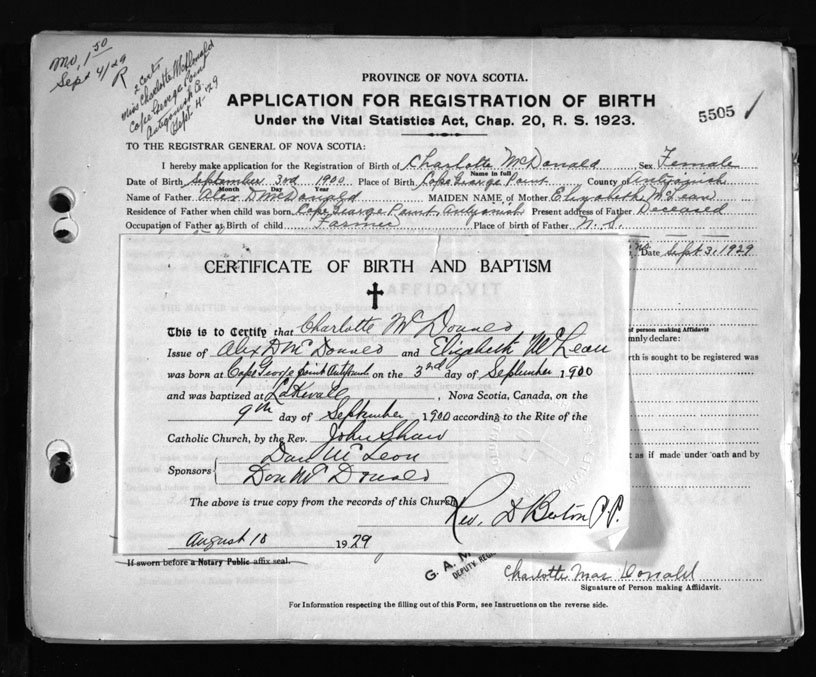 M.O. 1.50
Sept 4/29
R
2 certs
Miss Charlotte McDonald
Cape George Point
Antigonish Co.
Sept. 4. '29
PROVINCE OF NOVA SCOTIA.
APPLICATION FOR REGISTRATION OF BIRTH
5505
Under the Vital Statistics Act, Chap. 20, R. S. 1923.
TO THE REGISTRAR GENERAL OF NOVA SCOTIA:
I hereby make application for the Registration of Birth of Charlotte McDonald Sex Female
Name in full
Date of Birth September 3rd 1900 Place of Birth Cape George Point County of Antigonish
Month Day Year
Name of Father Alex D McDonald MAIDEN NAME of Mother Elizabeth McLean
Residence of Father when child was born Cape George Point Antigonish Present address of Father Deceased
Occupation of Father at Birth of child Farmer Place of birth of Father N. S.
Date Sept 3, 1929
CERTIFICATE OF BIRTH AND BAPTISM
This is to Certify that Charlotte McDonald
Issue of Alex D McDonald and Elizabeth McLean
was born at Cape George Point Antigonish on the 3rd day of September 1900
and was baptized at Lakevale, Nova Scotia, Canada, on the
9th day of September 1900 according to the Rite of the
Catholic Church, by the Rev. John Shaw
Sponsors Dan McLeon
Don McDonald
The above is true copy from the records of this Church
Rev. D Beaton P.P.
August 10 1929
of person making Affidavit
mnly declare:
Birth is sought to be registered was
t as if made under oath and by
If sworn before a Notary Public affix seal.
G. A. M
DEPUTY REGI
Charlotte MacDonald
Signature of Person making Affidavit.
For Information respecting the filling out of this Form, see Instructions on the reverse side.